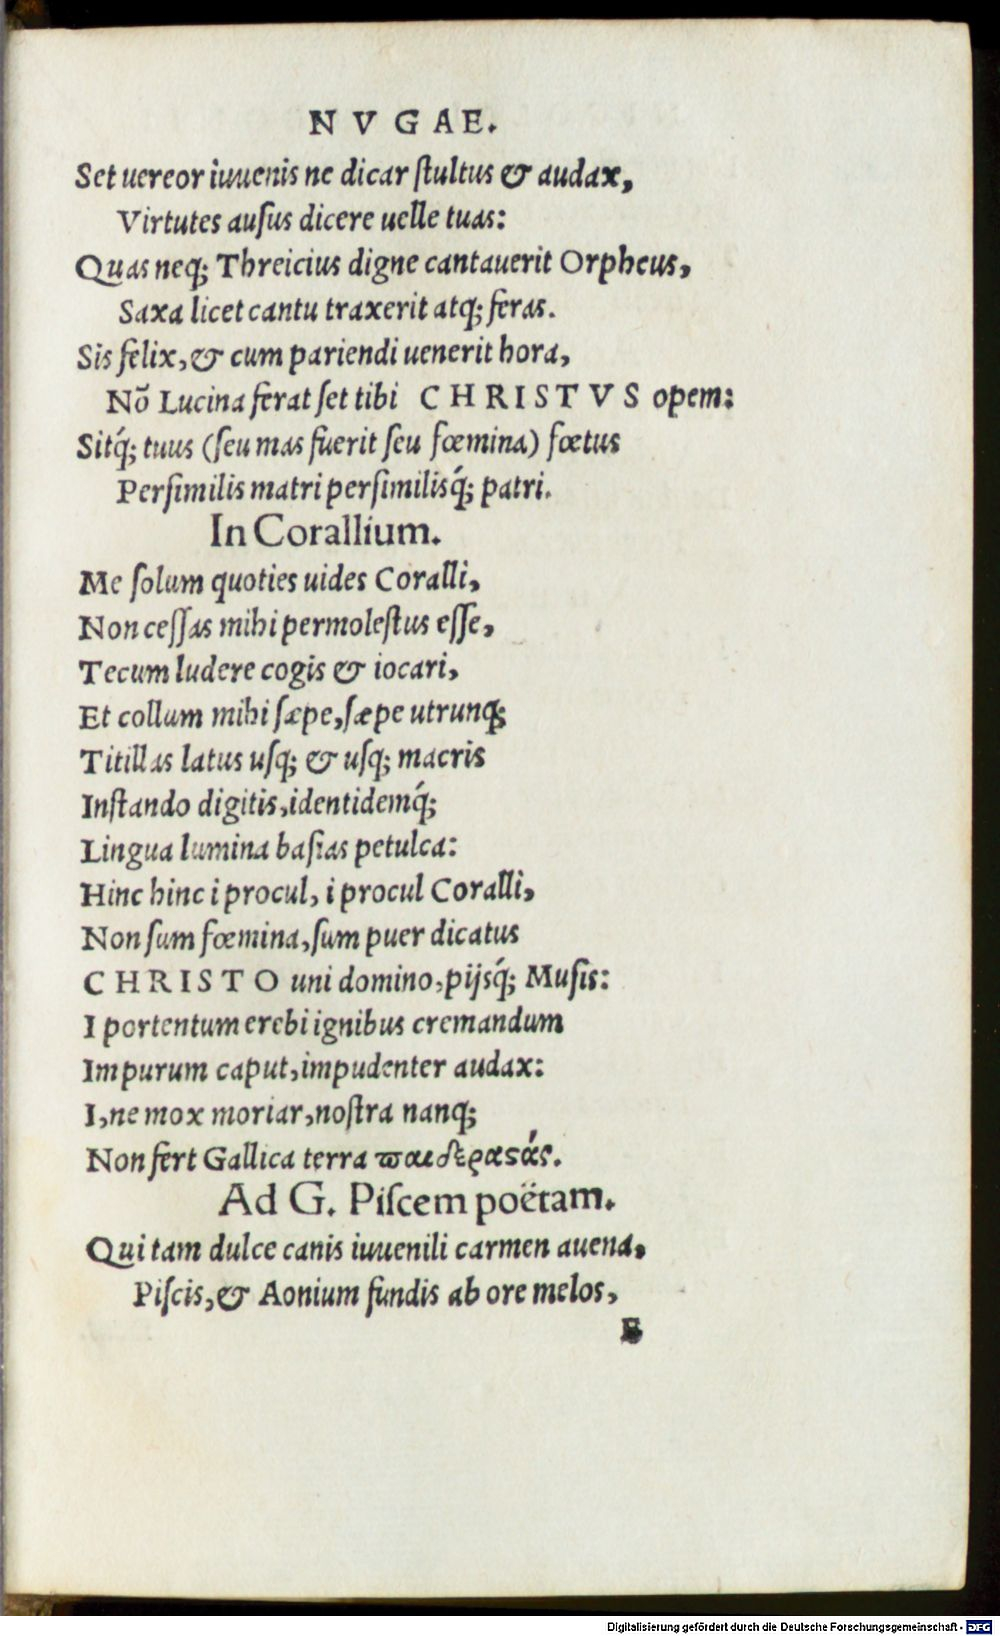 NVGAE.
Set uereor iuuenis ne dicar ſtultus & audax,
Virtutes auſus dicere uelle tuas:
Quas neq; Threicius digne cantauerit Orpheus,
Saxa licet cantu traxerit atq; feras.
Sis felix, & cum pariendi uenerit hora,
Nõ Lucina ferat ſet tibi CHRISTVS opem:
Sitq́; tuus (ſeu mas fuerit ſeu fœmina) fœtus
Perſimilis matri perſimilisq́; patri.
In Corallium.
Me ſolum quoties uides Coralli,
Non ceſſas mihi permoleſtus eſſe,
Tecum ludere cogis & iocari,
Et collum mihi ſæpe, ſæpe utrunq;
Titillas latus uſq; & uſq; macris
Inſtando digitis, identidemq́;
Lingua lumina baſias petulca:
Hinc hinc i procul, i procul Coralli,
Non ſum fœmina, ſum puer dicatus
CHRISTO uni domino, pijsq́; Muſis:
I portentum erebi ignibus cremandum
Impurum caput, impudenter audax:
I, ne mox moriar, noſtra nanq;
Non fert Gallica terra παιδεραςάς.
Ad G. Piſcem poëtam.
Qui tam dulce canis iuuenili carmen auena,
Piſcis, & Aonium fundis ab ore melos,
E
Digitalisierung gefördert durch die Deutsche Forschungsgemeinschaft - DFG